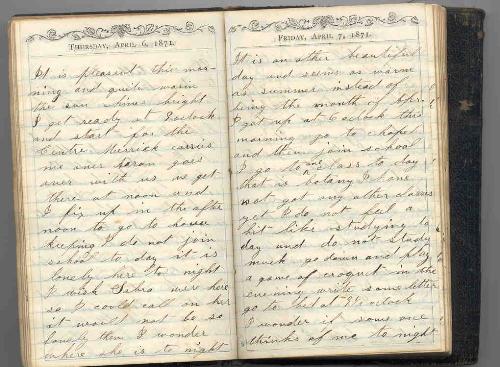 THURSDAY, APRIL 6, 1871.
It is pleasant this mor-
ning and quite warm
the sun shines bright
I get ready at 9 oclock
and start for the
Centre Merrick carries
me over Aaron goes
over with us we get
there at noon and
I fix up in the after
noon to go to house
keeping I do not join
school to day it is
lonely here to night
I wish Sabra were here
so I could call on her
it would not be so
lonely then I wonder
where she is to night
FRIDAY, APRIL 7, 1871.
It is another beautiful
day and seems as warm
as summer instead of
being the month of Apri
I got up at 6 oclock this
morning go to chapel
and then join school
I go to one class to day
that is botany I have
not got any other classes
yet I do not feel a
bit like studying to
day and do not study
much go down and play
a game of croquet in the
evening write some letter
go to bed at 9 oclock
I wonder if some one
thinks of me to night